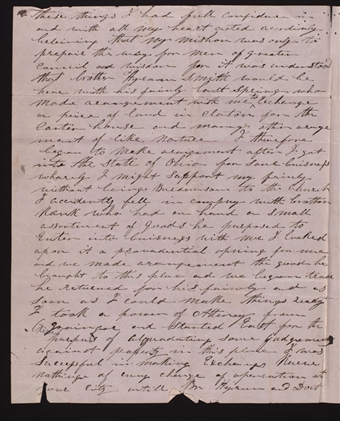 these things I had full confidence in
and with all my heart acted accordingly
believing that my mission was only to
prepare the way for men of greater
council and wisdom for it was understood
that brother Hyrum Smith would be
here with his family last Spring who
made arrangement with me to Exchange
a piece of land in Clinton for the
Canton house and many other arrange
ment of like nature I therefore
began to make arrangement after I got
into the State of Ohio for some business
whereby I might support my family
without being Burdensum to the Church
I accidently fell in company with brother
Rank who had on hand a small
assortment of Goods he purposed to
Enter into business with me I looked
upon it a providential opening for me
and we made arrangement the goods he
brought to this place and we began trade
he returned for his family and as
soon as I could make things ready
I took a power of Attorney from
and started East for the
purpose of liquadating some judgement
against property in this place I was
Successful in making Exchanges
nothinge of any change of operation at
your City untill Br Hyrum and Dort